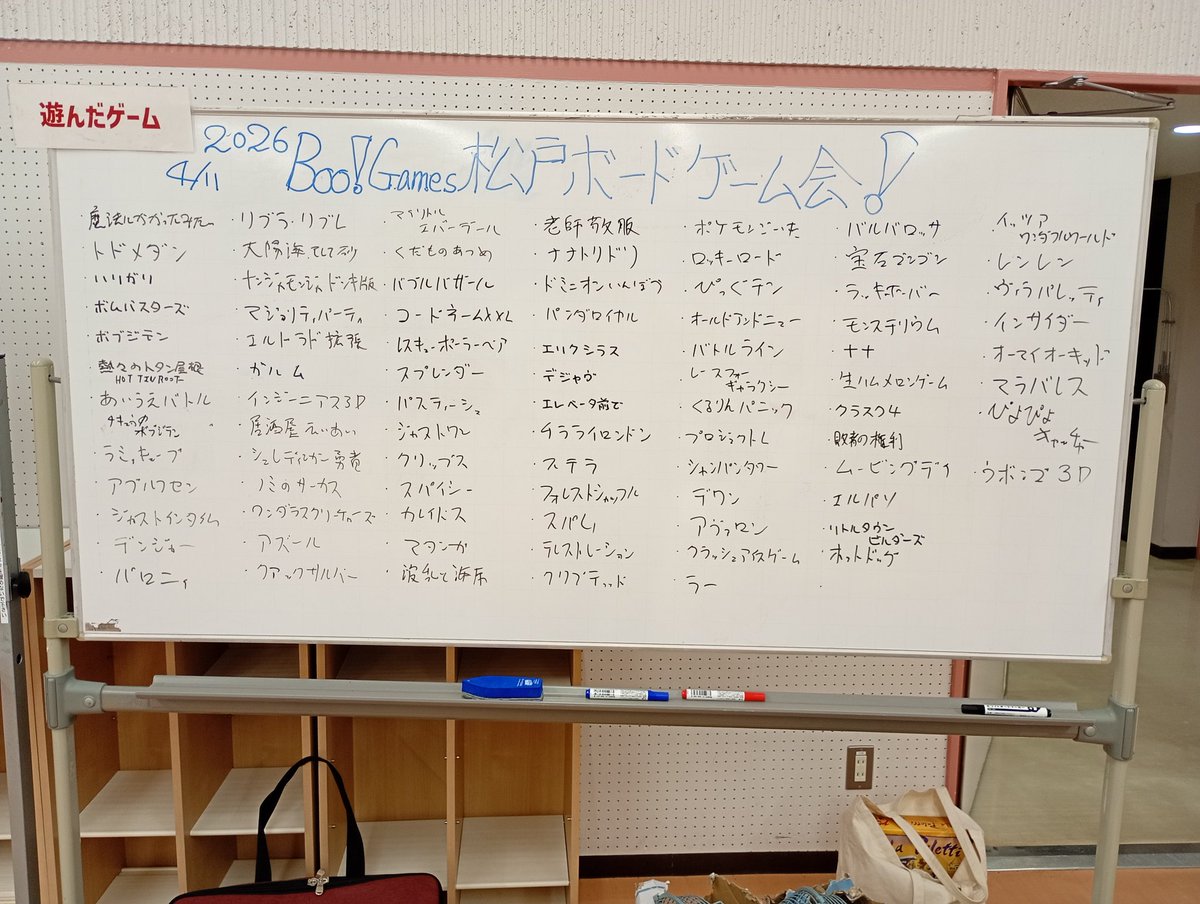 遊んだゲーム
2026
4/11
Boo!Games松戸ボードゲーム会!
・トドメダン
・ハリガリ
・ボムバスターズ
・ボブジテン
・熱々のトタン屋根
HOT TIN ROOF
・あいうえバトル
ボブジテン
・ラミィキューブ
・アブルクセン
・ジャストインタイム
・デンジャー
・バロニィ
・リブラ・リブレ
・ナンジャモンジャ ドンキ版
・マジョリティパーティ
・エルドラド拡張
・ガルム
・インジーニアス3D
・居酒屋
・シュレディンガー勇者
・ノミのサーカス
・ワンダラスクリーチャーズ
・アズール
・クアックサルバー
・マイリトル
エバーデール
・くだものあつめ
・バブルバザール
・コードネームXXL
・レスキューポーラーベア
・スプレンダー
・パスティーシュ
・ジャストワン
・クリップス
・スパイシー
・カレイドス
・マタンガ
・老師敬服
・ナナトリドリ
・ドミニオンいんぼう
・パンダロイヤル
・エリクシラス
・デジャヴ
・エレベータ前で
・チラライロンドン
・ステラ
・フォレストシャッフル
・スパイ
・テレストレーション
・クリプティッド
・ロッキーロード
・ぴっぐテン
・オールドアンドニュー
・バトルライン
・レースフォー
ギャラクシー
・くるりんパニック
・プロジェクトL
・シャンパンタワー
・デワン
・アヴァロン
・クラッシュアイスゲーム
・ラー
・バルバロッサ
・宝石ブンブン
・モンステリウム
・ナナ
・生ハムメロンゲーム
・クラスク4
・敗者の権利
・ムービングデイ
・エルパソ
・リトルタウン
ビルダーズ
・ホットドッグ
・イッツ ア
ワンダフルワールド
・レンレン
・ヴィラパレッティ
・インサイダー
・オーマイオーキッド
・マラバレス
・ぴよぴよ
キャッチャー
・ウボンゴ 3D